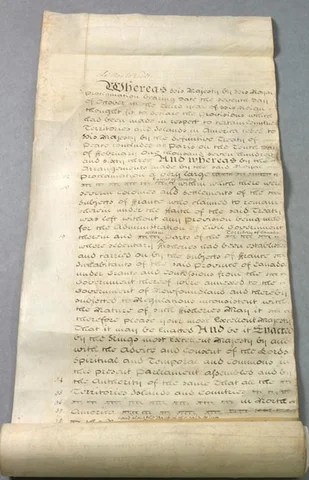 Whereas His Majesty by His Royal
Proclamation bearing date the seventh Day
of October in the third year of His Reign
thought fit to declare the Provisions which
had been made in respect to certain Countries
Territories and Islands in America ceded to
His Majesty by the definitive Treaty of
Peace concluded at Paris on the Tenth Day
of February One thousand seven hundred
and sixty three And whereas by the
Arrangements made by the said Royal
Proclamation a very large
within which there were
several Colonies and Settlements of the
Subjects of France who claimed to remain
therein under the Faith of the said Treaty
was left without any Provision being made
for the Administration of Civil Government
therein and parts of the
where sedentary Fisheries had been established
and carried on by the Subjects of France
Inhabitants of the said Province of Canada
under Grants and Concessions from the
Government thereof were annexed to the
Government of Newfoundland and thereby
subjected to Regulations inconsistent with
the Nature of such Fisheries May it
therefore please your most Excellent Majesty
That it may be Enacted And be it Enacted
by the Kings most Excellent Majesty by and
with the Advice and Consent of the Lords
Spiritual and Temporal and Commons in
this present Parliament assembled and by
the Authority of the same That all the
Territories Islands and Countries
in North
America